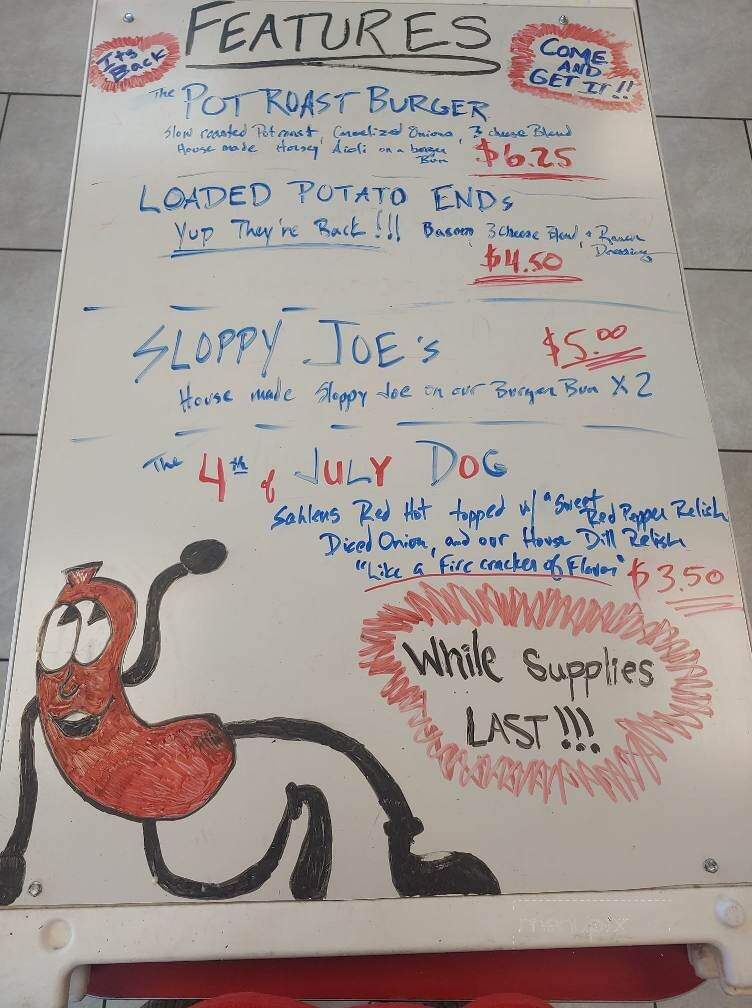 FEATURES
Its Back
COME AND GET IT!!
The POT ROAST BURGER
Slow roasted Pot roast, Carmelized Onions, 3 cheese Blend
House made Horsey Aioli on a burger Bun $6.25
LOADED POTATO ENDs
Yup They're Back!!! Bacon 3 Cheese Blend, + Ranch Dressing
$4.50
SLOPPY JOE's $5.00
House made Sloppy Joe on our Burger Bun X 2
The 4th of JULY DOG
Sahlens Red Hot topped w/ a Sweet Red Pepper Relish
Diced Onion, and our House Dill Relish
"Like a Fire cracker of Flavor" $3.50
While Supplies
LAST!!!